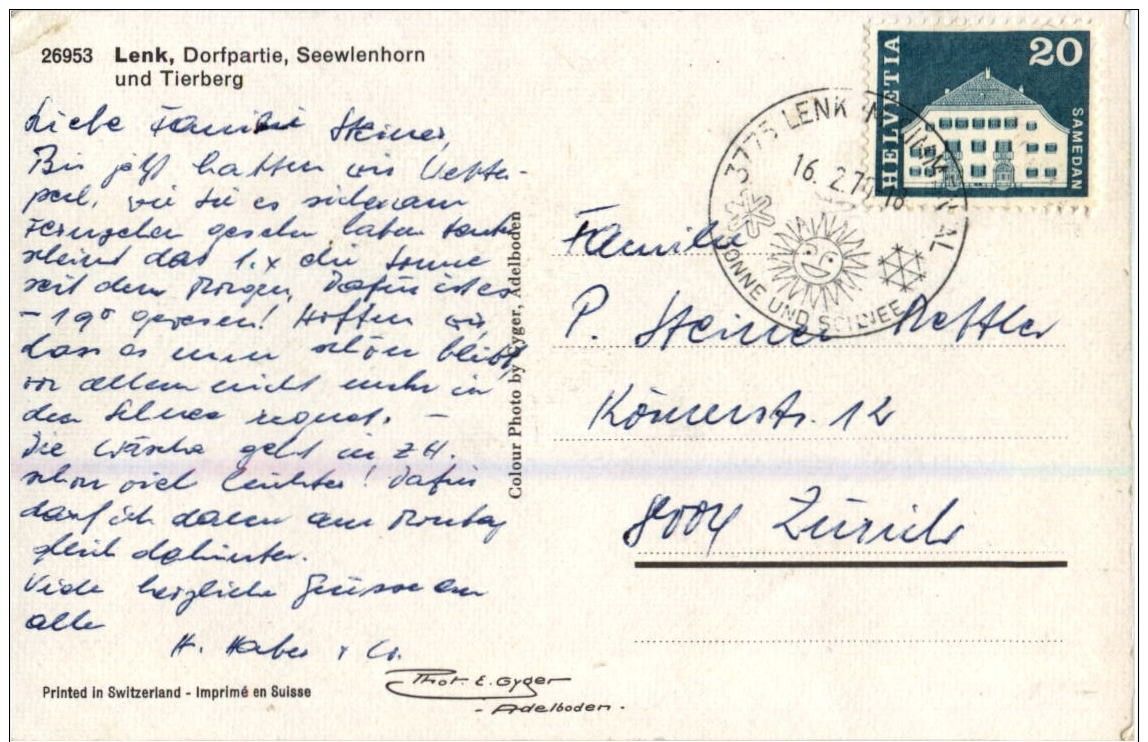 26953 Lenk, Dorfpartie, Seewlenhorn
und Tierberg
Liebe Familie Steiner,
Bis jetzt hatten wir Wetter-
pech, wie Sie es sicher am
Fernsehen gesehen haben heute
scheint das 1. x die Sonne
seit dem Morgen. Dafür ist es
-19° gewesen! Hoffen wir,
dass es nun schön bleibt,
vor allem nicht mehr in
den Schnee regnet. -
Die Wäsche geht in ZH.
schon viel leichter! Dafür
darf ich dann am Montag
gleich dahinter.
Viele herzliche Grüsse an
alle
H. Haber + Co.
Printed in Switzerland - Imprimé en Suisse
Phot. E. Gyger
- Adelboden -
Colour Photo by Gyger, Adelboden
HELVETIA
20
SAMEDAN
3775 LENK
16. 2. 18
SONNE UND SCHNEE
Familie
P. Steiner
Zürich
8004
12